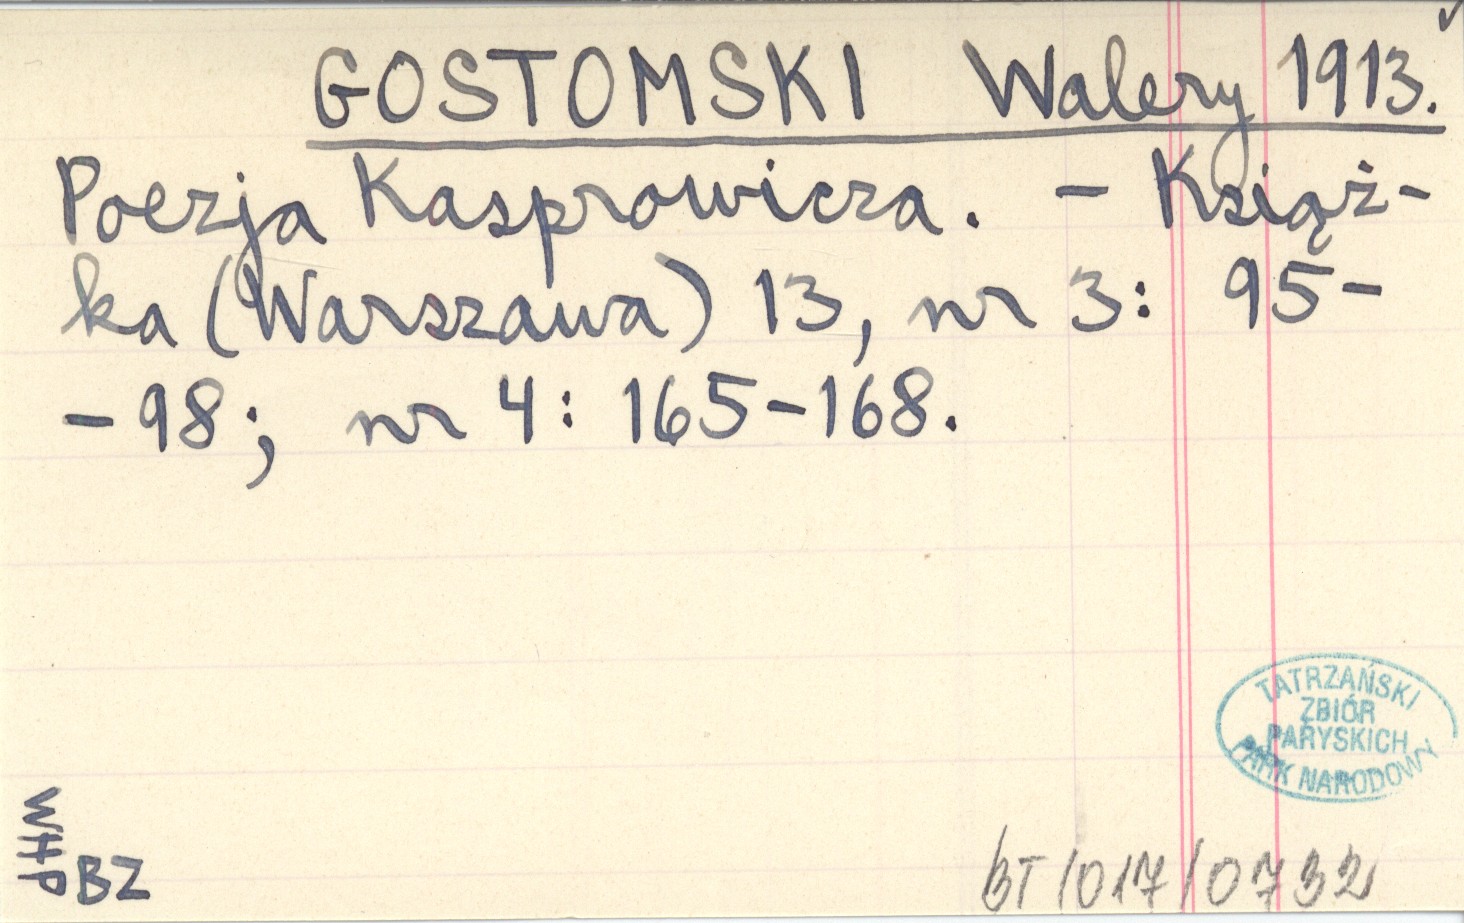 GOSTOMSKI Walery 1913.
Poezja Kasprowicza. - Książ-
ka (Warszawa) 13, nr 3: 95-
-98; nr 4: 165-168.
TATRZAŃSKI
ZBIÓR
PARYSKICH
PARK NARODOWY
WHP
BZ
BT/017/0732